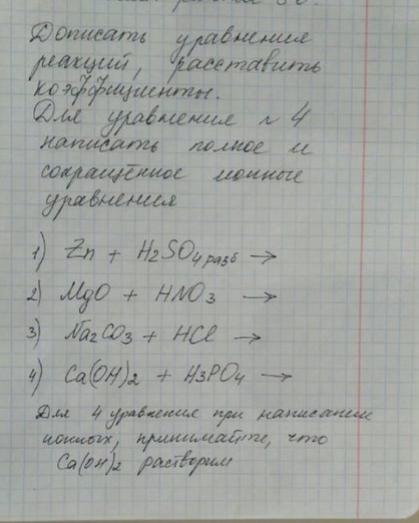 Дописать уравнения
реакций, расставить
коэффициенты.
Для уравнения № 4
написать полное и
сокращённое ионные
уравнения
1) Zn + H₂SO₄ разб →
2) MgO + HNO₃ →
3) Na₂CO₃ + HCl →
4) Ca(OH)₂ + H₃PO₄ →
Для 4 уравнения при написании
ионных, принимайте, что
Ca(OH)₂ растворим